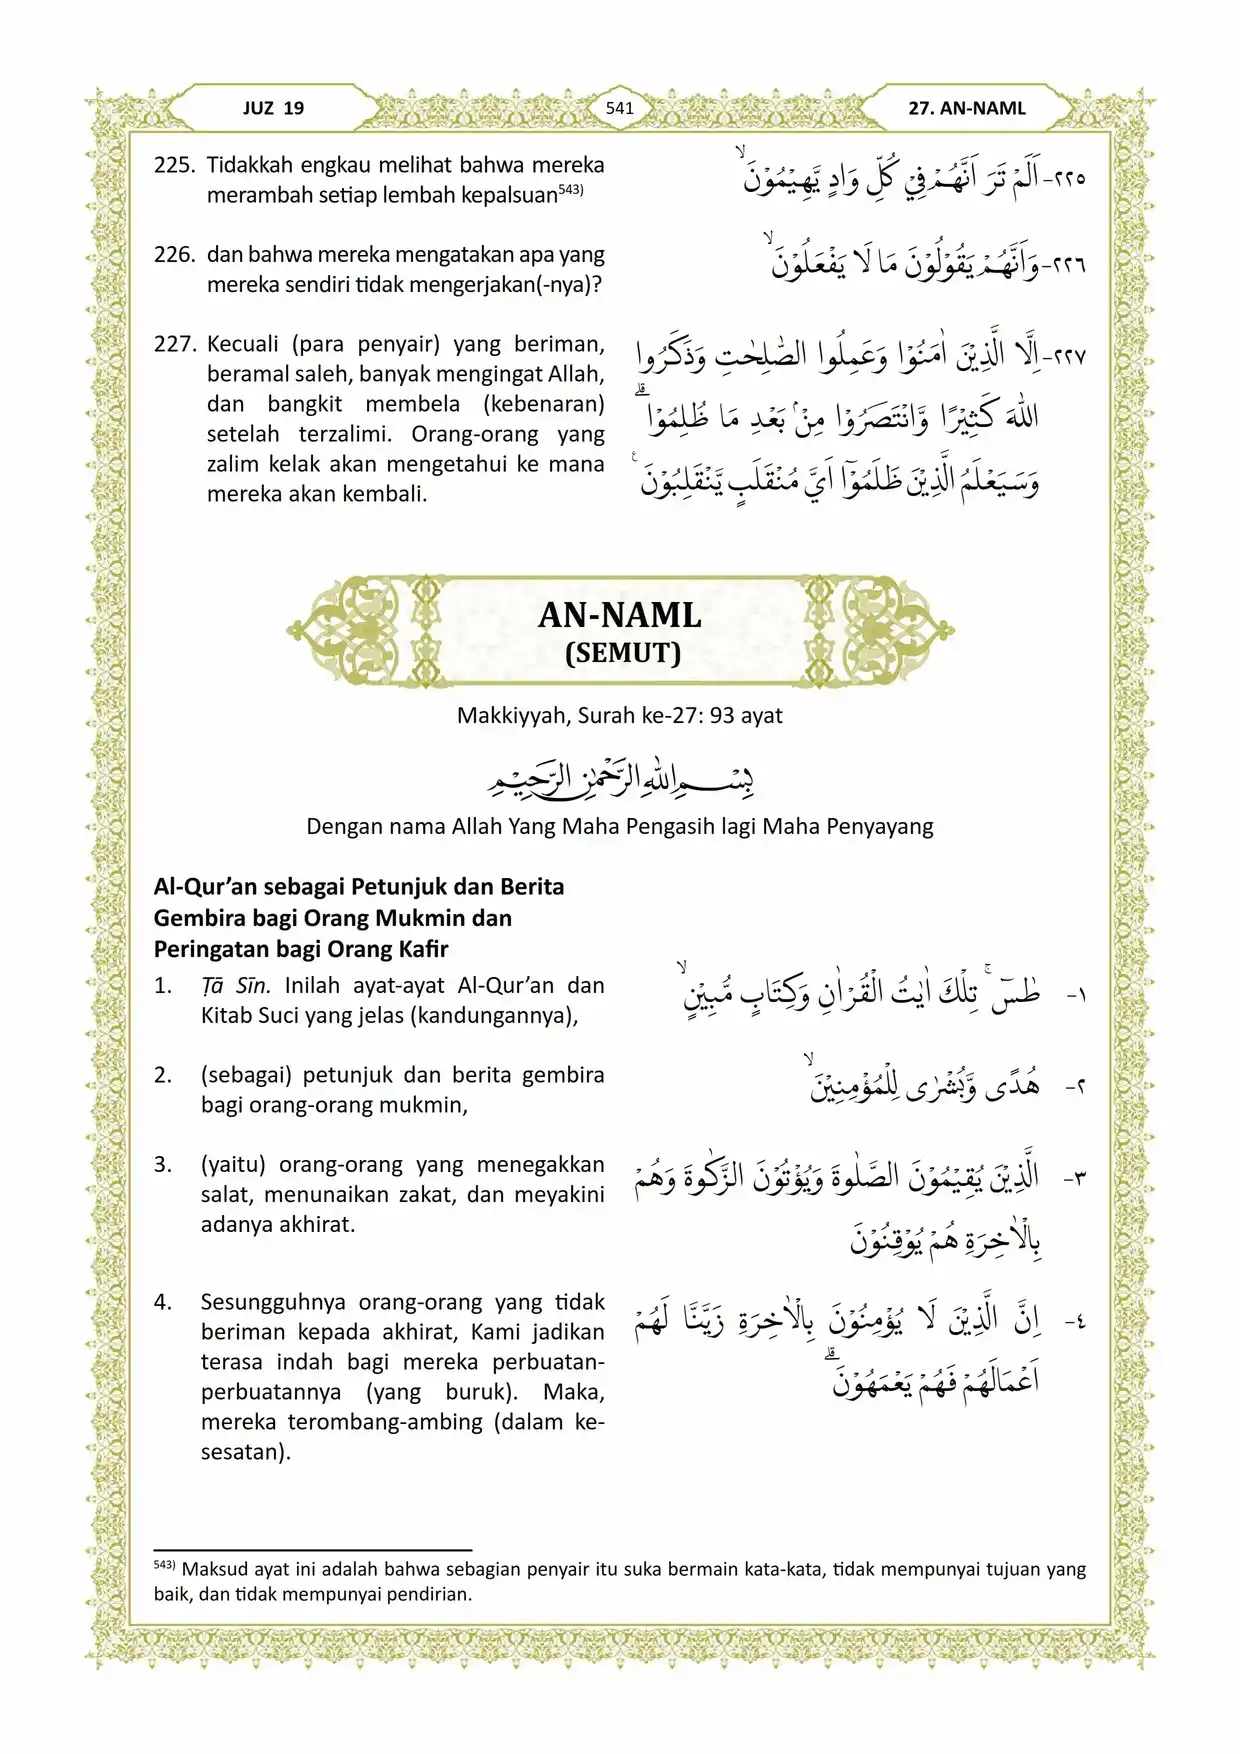 JUZ 19
541
27. AN-NAML
225. Tidakkah engkau melihat bahwa mereka
merambah setiap lembah kepalsuan543)
٢٢٥- اَلَمْ تَرَ اَنَّهُمْ فِيْ كُلِّ وَادٍ يَّهِيْمُوْنَۙ
226. dan bahwa mereka mengatakan apa yang
mereka sendiri tidak mengerjakan(-nya)?
٢٢٦- وَاَنَّهُمْ يَقُوْلُوْنَ مَا لَا يَفْعَلُوْنَۙ
227. Kecuali (para penyair) yang beriman,
beramal saleh, banyak mengingat Allah,
dan bangkit membela (kebenaran)
setelah terzalimi. Orang-orang yang
zalim kelak akan mengetahui ke mana
mereka akan kembali.
٢٢٧- اِلَّا الَّذِيْنَ اٰمَنُوْا وَعَمِلُوا الصّٰلِحٰتِ وَذَكَرُوا
اللّٰهَ كَثِيْرًا وَّانْتَصَرُوْا مِنْۢ بَعْدِ مَا ظُلِمُوْاۗ
وَسَيَعْلَمُ الَّذِيْنَ ظَلَمُوْٓا اَيَّ مُنْقَلَبٍ يَّنْقَلِبُوْنَ ࣖ
AN-NAML
(SEMUT)
Makkiyyah, Surah ke-27: 93 ayat
بِسْمِ اللّٰهِ الرَّحْمٰنِ الرَّحِيْمِ
Dengan nama Allah Yang Maha Pengasih lagi Maha Penyayang
Al-Qur’an sebagai Petunjuk dan Berita
Gembira bagi Orang Mukmin dan
Peringatan bagi Orang Kafir
1. Ṭā Sīn. Inilah ayat-ayat Al-Qur’an dan
Kitab Suci yang jelas (kandungannya),
١- طٰسۤ ۚ تِلْكَ اٰيٰتُ الْقُرْاٰنِ وَكِتَابٍ مُّبِيْنٍۙ
2. (sebagai) petunjuk dan berita gembira
bagi orang-orang mukmin,
٢- هُدًى وَّبُشْرٰى لِلْمُؤْمِنِيْنَۙ
3. (yaitu) orang-orang yang menegakkan
salat, menunaikan zakat, dan meyakini
adanya akhirat.
٣- الَّذِيْنَ يُقِيْمُوْنَ الصَّلٰوةَ وَيُؤْتُوْنَ الزَّكٰوةَ وَهُمْ
بِالْاٰخِرَةِ هُمْ يُوْقِنُوْنَ
4. Sesungguhnya orang-orang yang tidak
beriman kepada akhirat, Kami jadikan
terasa indah bagi mereka perbuatan-
perbuatannya (yang buruk). Maka,
mereka terombang-ambing (dalam ke-
sesatan).
٤- اِنَّ الَّذِيْنَ لَا يُؤْمِنُوْنَ بِالْاٰخِرَةِ زَيَّنَّا لَهُمْ
اَعْمَالَهُمْ فَهُمْ يَعْمَهُوْنَۗ
543) Maksud ayat ini adalah bahwa sebagian penyair itu suka bermain kata-kata, tidak mempunyai tujuan yang
baik, dan tidak mempunyai pendirian.